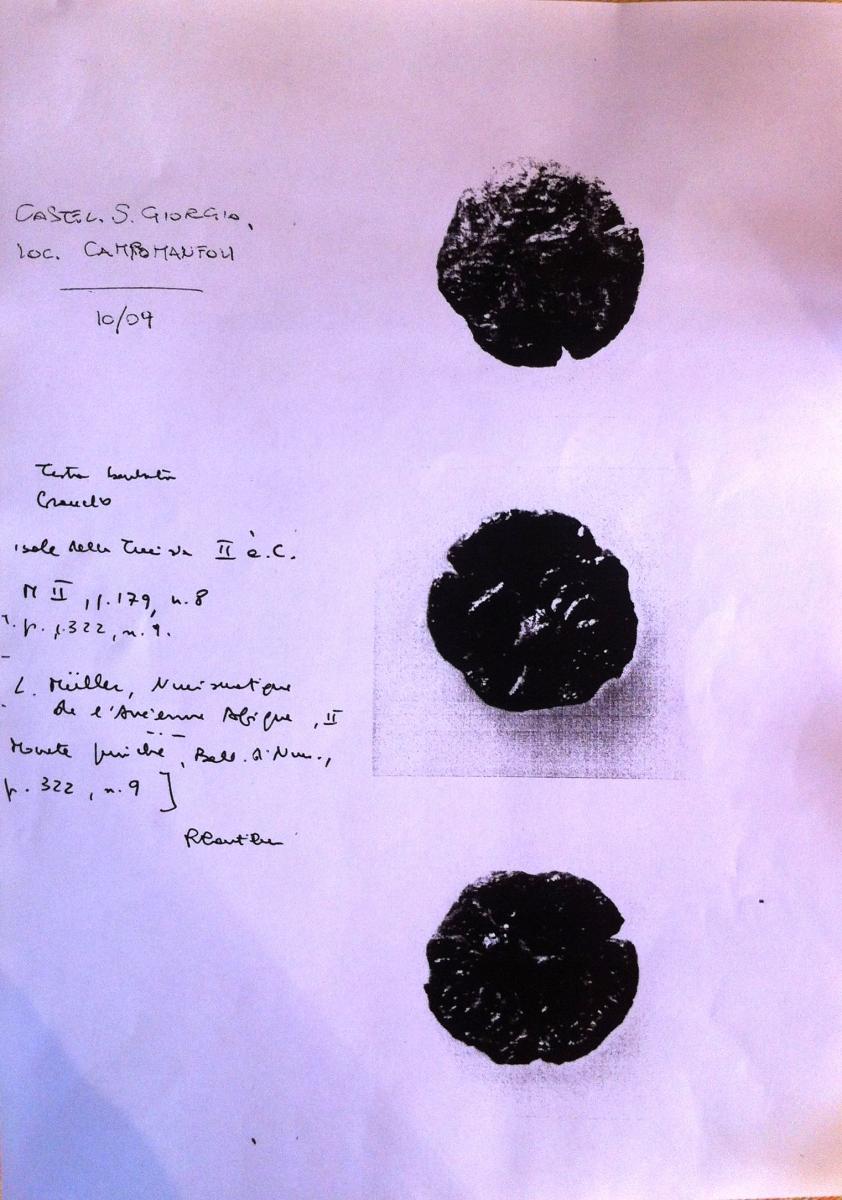 CASTEL S. GIORGIO,
LOC. CAMPOMANFOLI
10/09
Testa barbata
Granchio
isole della II a.C.
M II, p. 179, n. 8
p. 322, n. 9.
L. Müller, Numismatique
de l'Ancienne Afrique, II
Monete puniche, Boll. di Num.,
p. 322, n. 9]